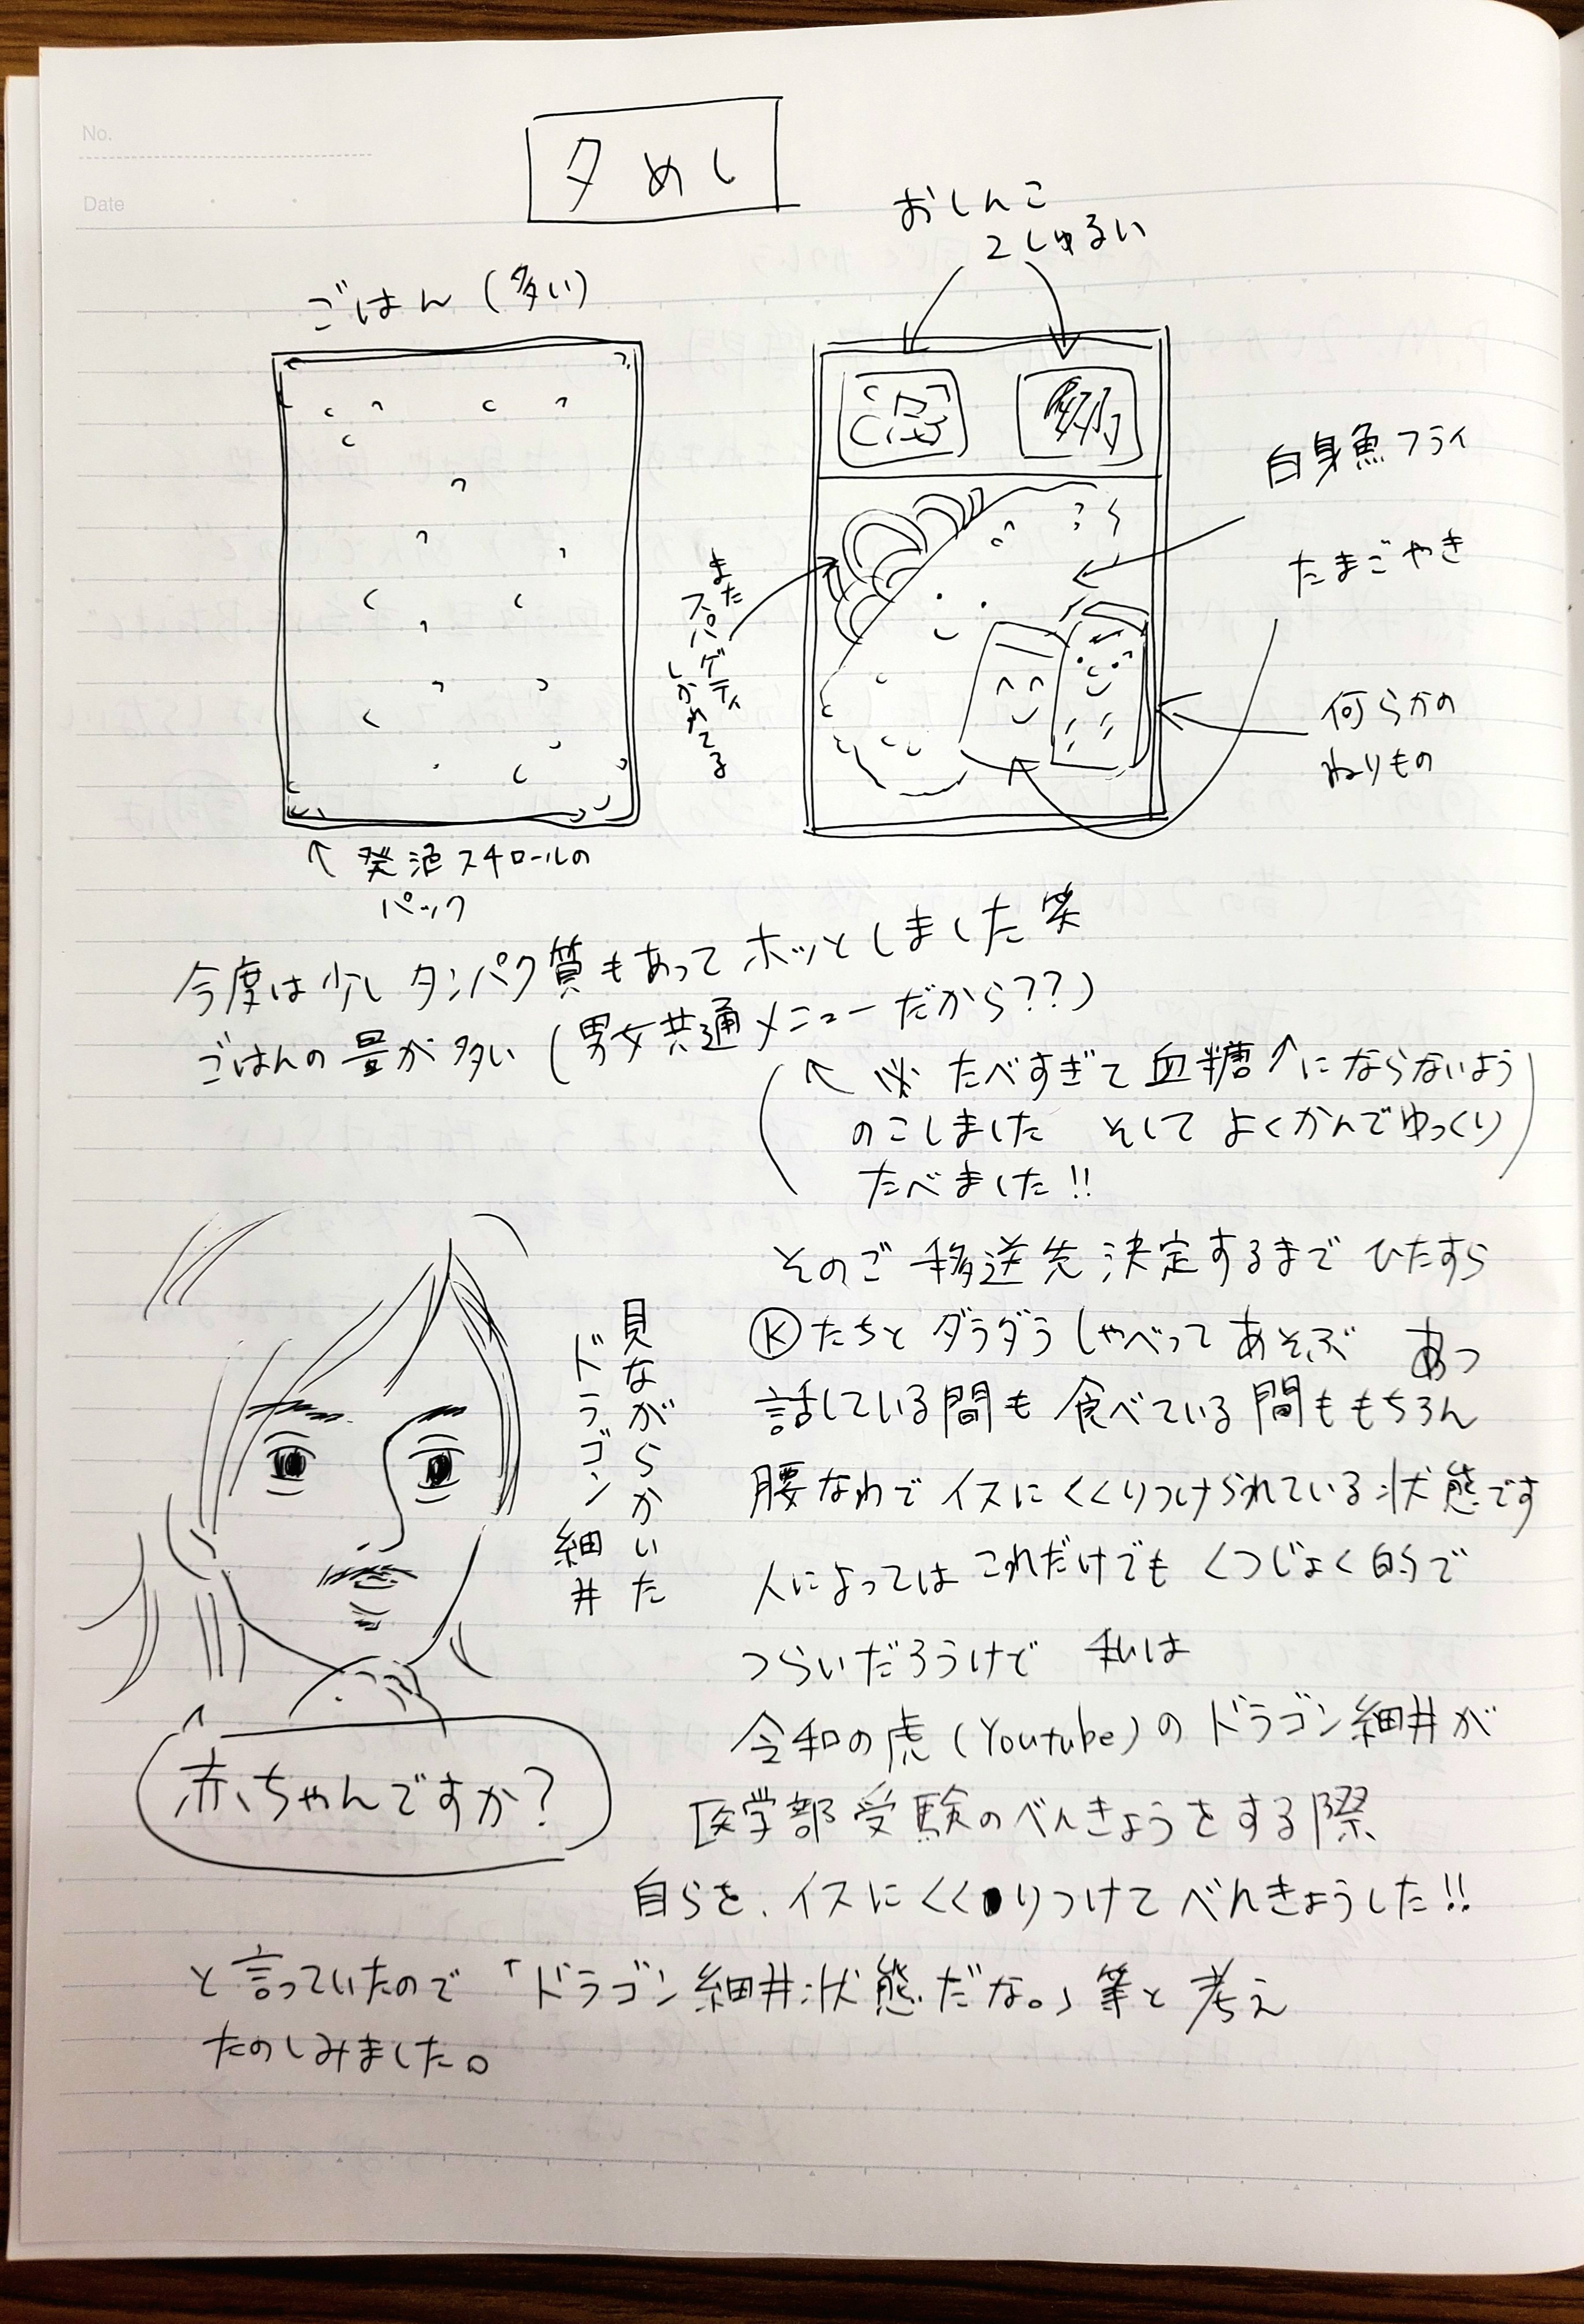 No.
Date
夕めし
おしんこ
2しゅるい
ごはん(多い)
白身魚フライ
たまごやき
また
スパゲティ
しかれてる
何らかの
ねりもの
↑ 発泡スチロールの
パック
今度は少しタンパク質もあってホッとしました笑
ごはんの量が多い(男女共通メニューだから??)
(↑ ※ たべすぎて血糖↑にならないよう
のこしました そして よくかんでゆっくり
たべました!!)
そのご移送先決定するまでひたすら
Ⓚたちとダラダラしゃべってあそぶ あっ
話している間も食べている間ももちろん
腰なわでイスにくくりつけられている状態です
人によってはこれだけでもくつじょく的で
つらいだろうけど 私は
令和の虎(Youtube)のドラゴン細井が
医学部受験のべんきょうをする際
自らを、イスにくくりつけてべんきょうした!!
と言っていたので「ドラゴン細井状態だな。」等と考え
たのしみました。
見ながらかいた
ドラゴン細井
赤ちゃんですか?